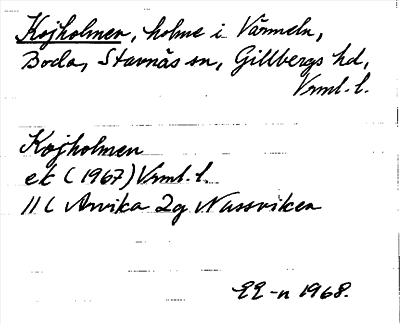 Kojholmen, holme i Värmeln,
Boda, Stavnäs sn, Gillbergs hd,
Vrml. l.
Kojholmen
ek (1967) Vrml. l.
11C Arvika 2g Nussviken
EE-n 1968.